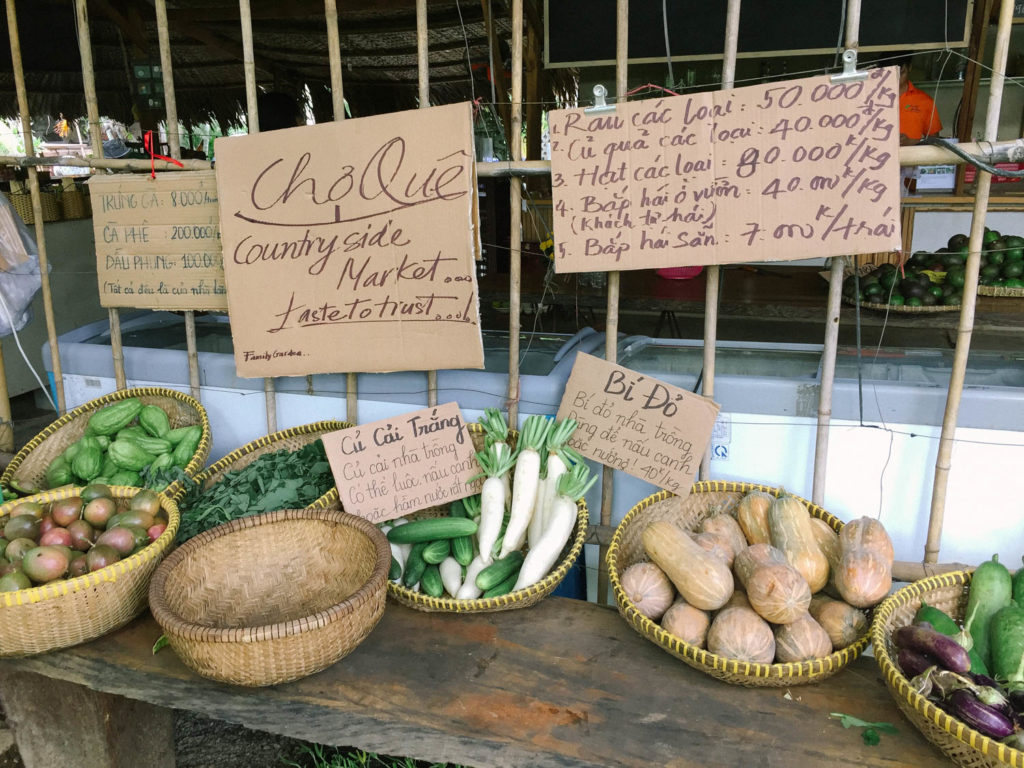 TRỨNG GÀ: 8.000/
CÀ PHÊ: 200.000/
ĐẬU PHỤNG: 100.000
(Tất cả đều là của nhà
Chợ Quê
Country side
Market....
taste to trust....
Family Garden..
1. Rau các loại: 50.000đ/kg
2. Củ quả các loại: 40.000đ/kg
3. Hạt các loại: 80.000đ/kg
4. Bắp hái ở vườn: 40.000đ/kg
(Khách tự hái)
5. Bắp hái Sẵn: 7.000đ/trái
Củ Cải Trắng
Củ cải nhà trồng
Có thể luộc, nấu canh
hoặc hầm nước rất
Bí Đỏ
Bí đỏ nhà trồng
Dùng để nấu canh
hoặc nướng! 40k/kg